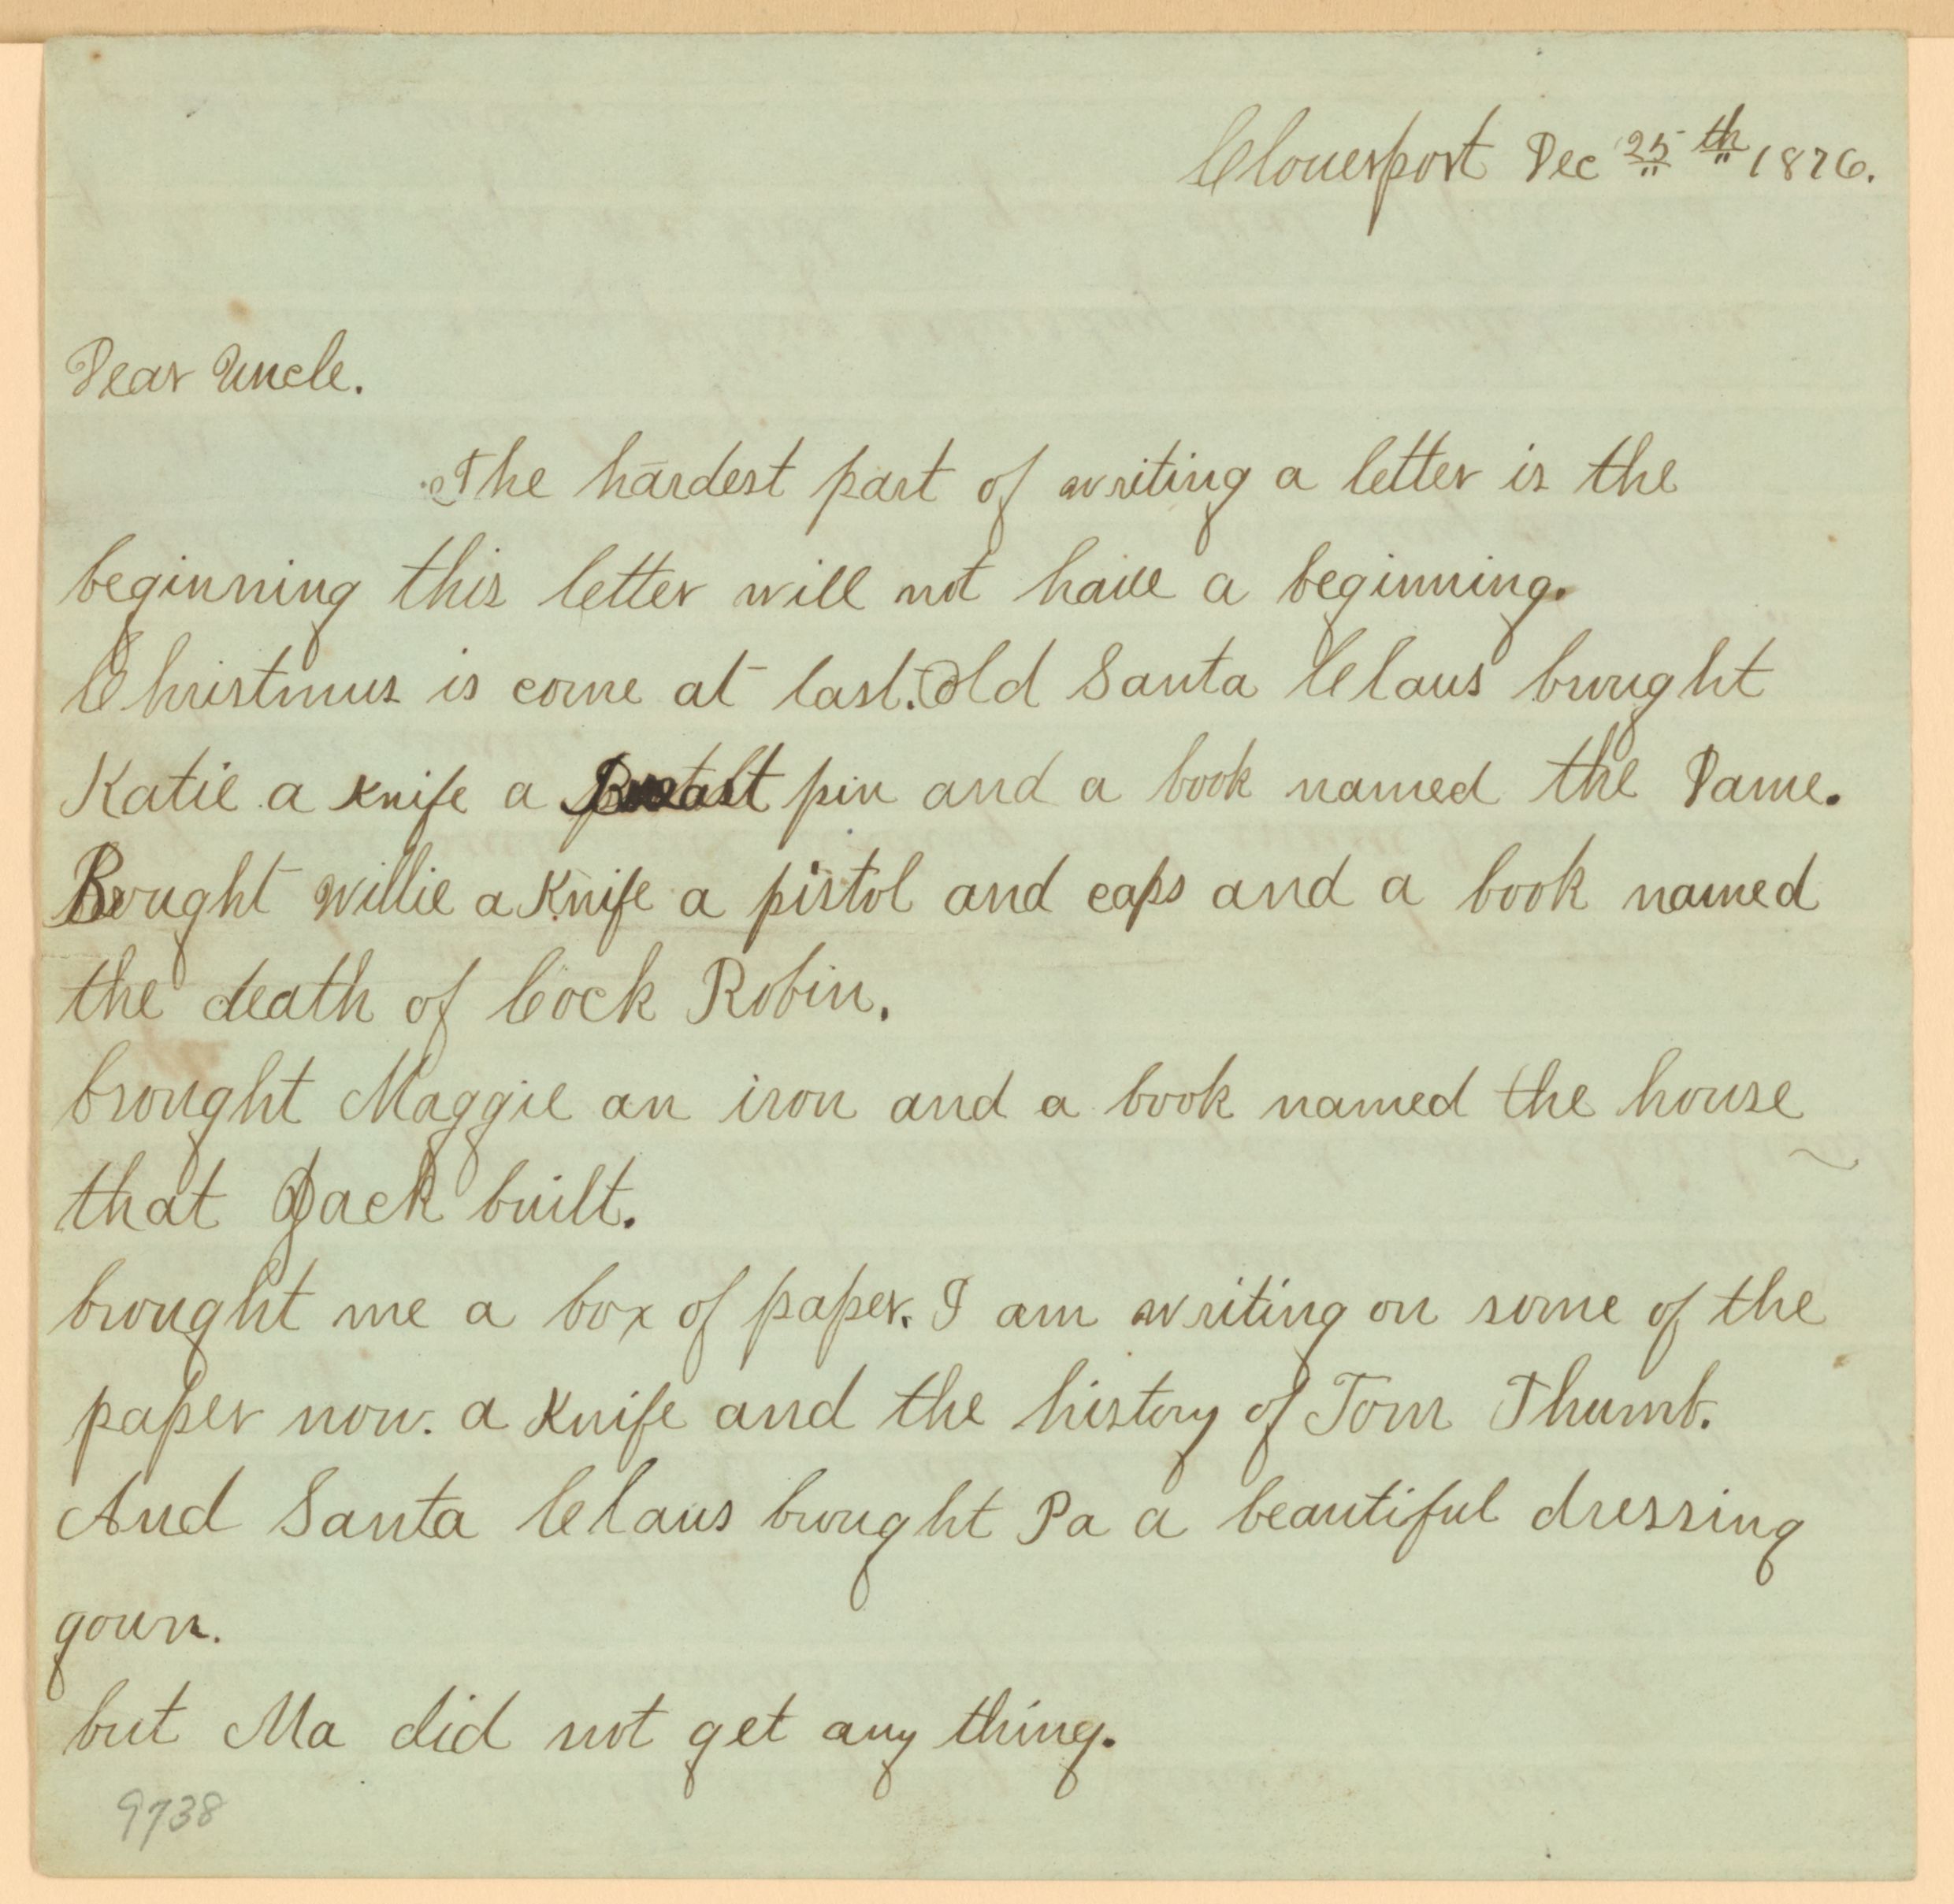 Cloverport Dec 25th 1876.
Dear Uncle.
The hardest part of writing a letter is the
beginning this letter will not have a beginning.
Christmus is come at last. Old Santa Claus brought
Katie a knife a Breast pin and a book named the Dame.
Brought Willie a knife a pistol and caps and a book named
the death of Cock Robin.
brought Maggie an iron and a book named the house
that Jack built.
brought me a box of paper. I am writing on some of the
paper now. a knife and the history of Tom Thumb.
And Santa Claus brought Pa a beautiful dressing
goun.
but Ma did not get any thing.
9738